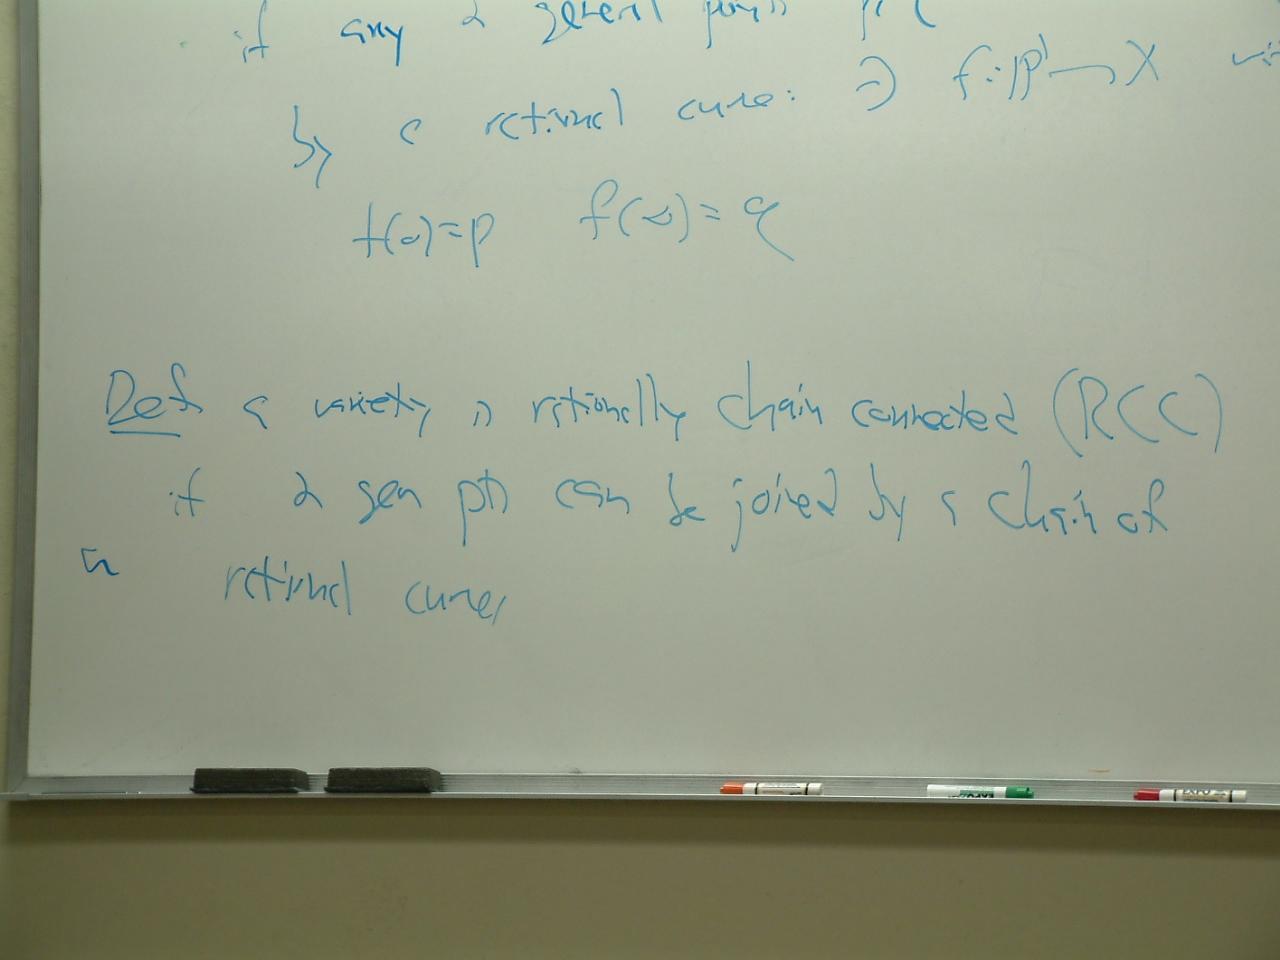 if any 2 general points p, q
by a rational curve: ∃ f: P¹ → X
f(0) = p f(∞) = q
Def a variety is rationally chain connected (RCC)
if 2 gen pts can be joined by a chain of
rational curves
EXPO
EXPO